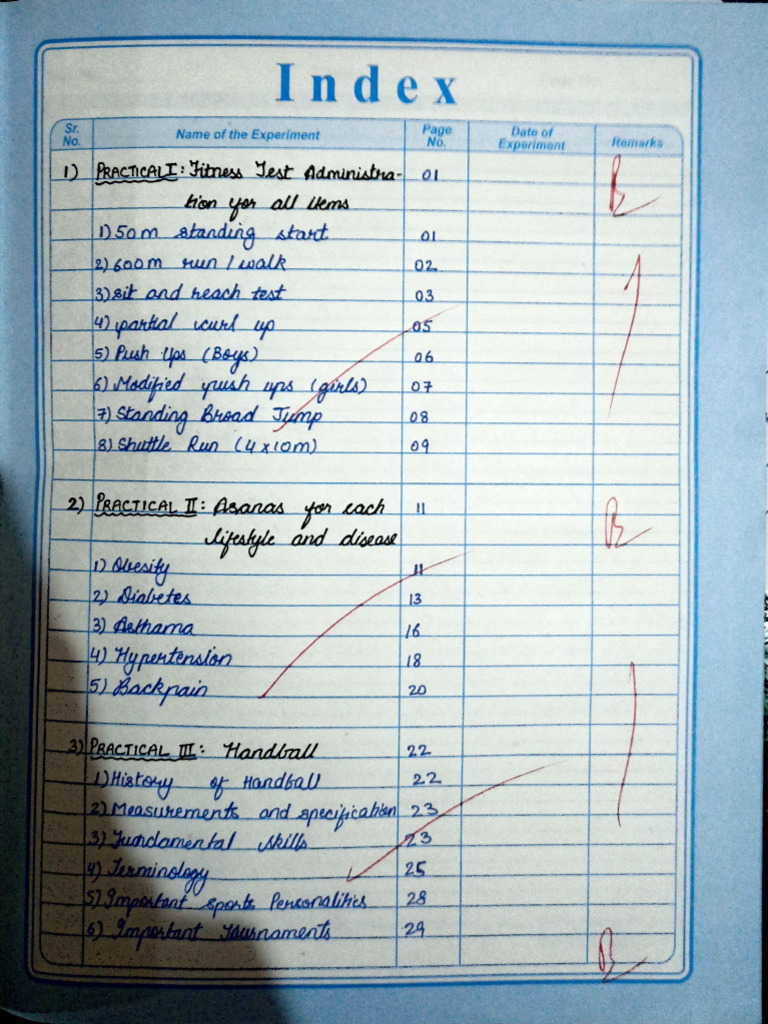 Index
Sr. No. Name of the Experiment Page No. Date of Experiment Remarks
1) PRACTICAL I: Fitness Test Administra- 01
tion for all items
1) 50m standing start 01
2) 600m run / walk 02
3) sit and reach test 03
4) partial curl up 05
5) Push Ups (Boys) 06
6) Modified push ups (girls) 07
7) Standing Broad Jump 08
8) Shuttle Run (4x10m) 09
2) PRACTICAL II: Asanas for each 11
lifestyle and disease
1) Obesity 11
2) Diabetes 13
3) Asthama 16
4) Hypertension 18
5) Backpain 20
3) PRACTICAL III: Handball 22
1) History of Handball 22
2) Measurements and specification 23
3) Fundamental skills 23
4) Terminology 25
5) Important sports Personalities 28
6) Important Tournaments 29